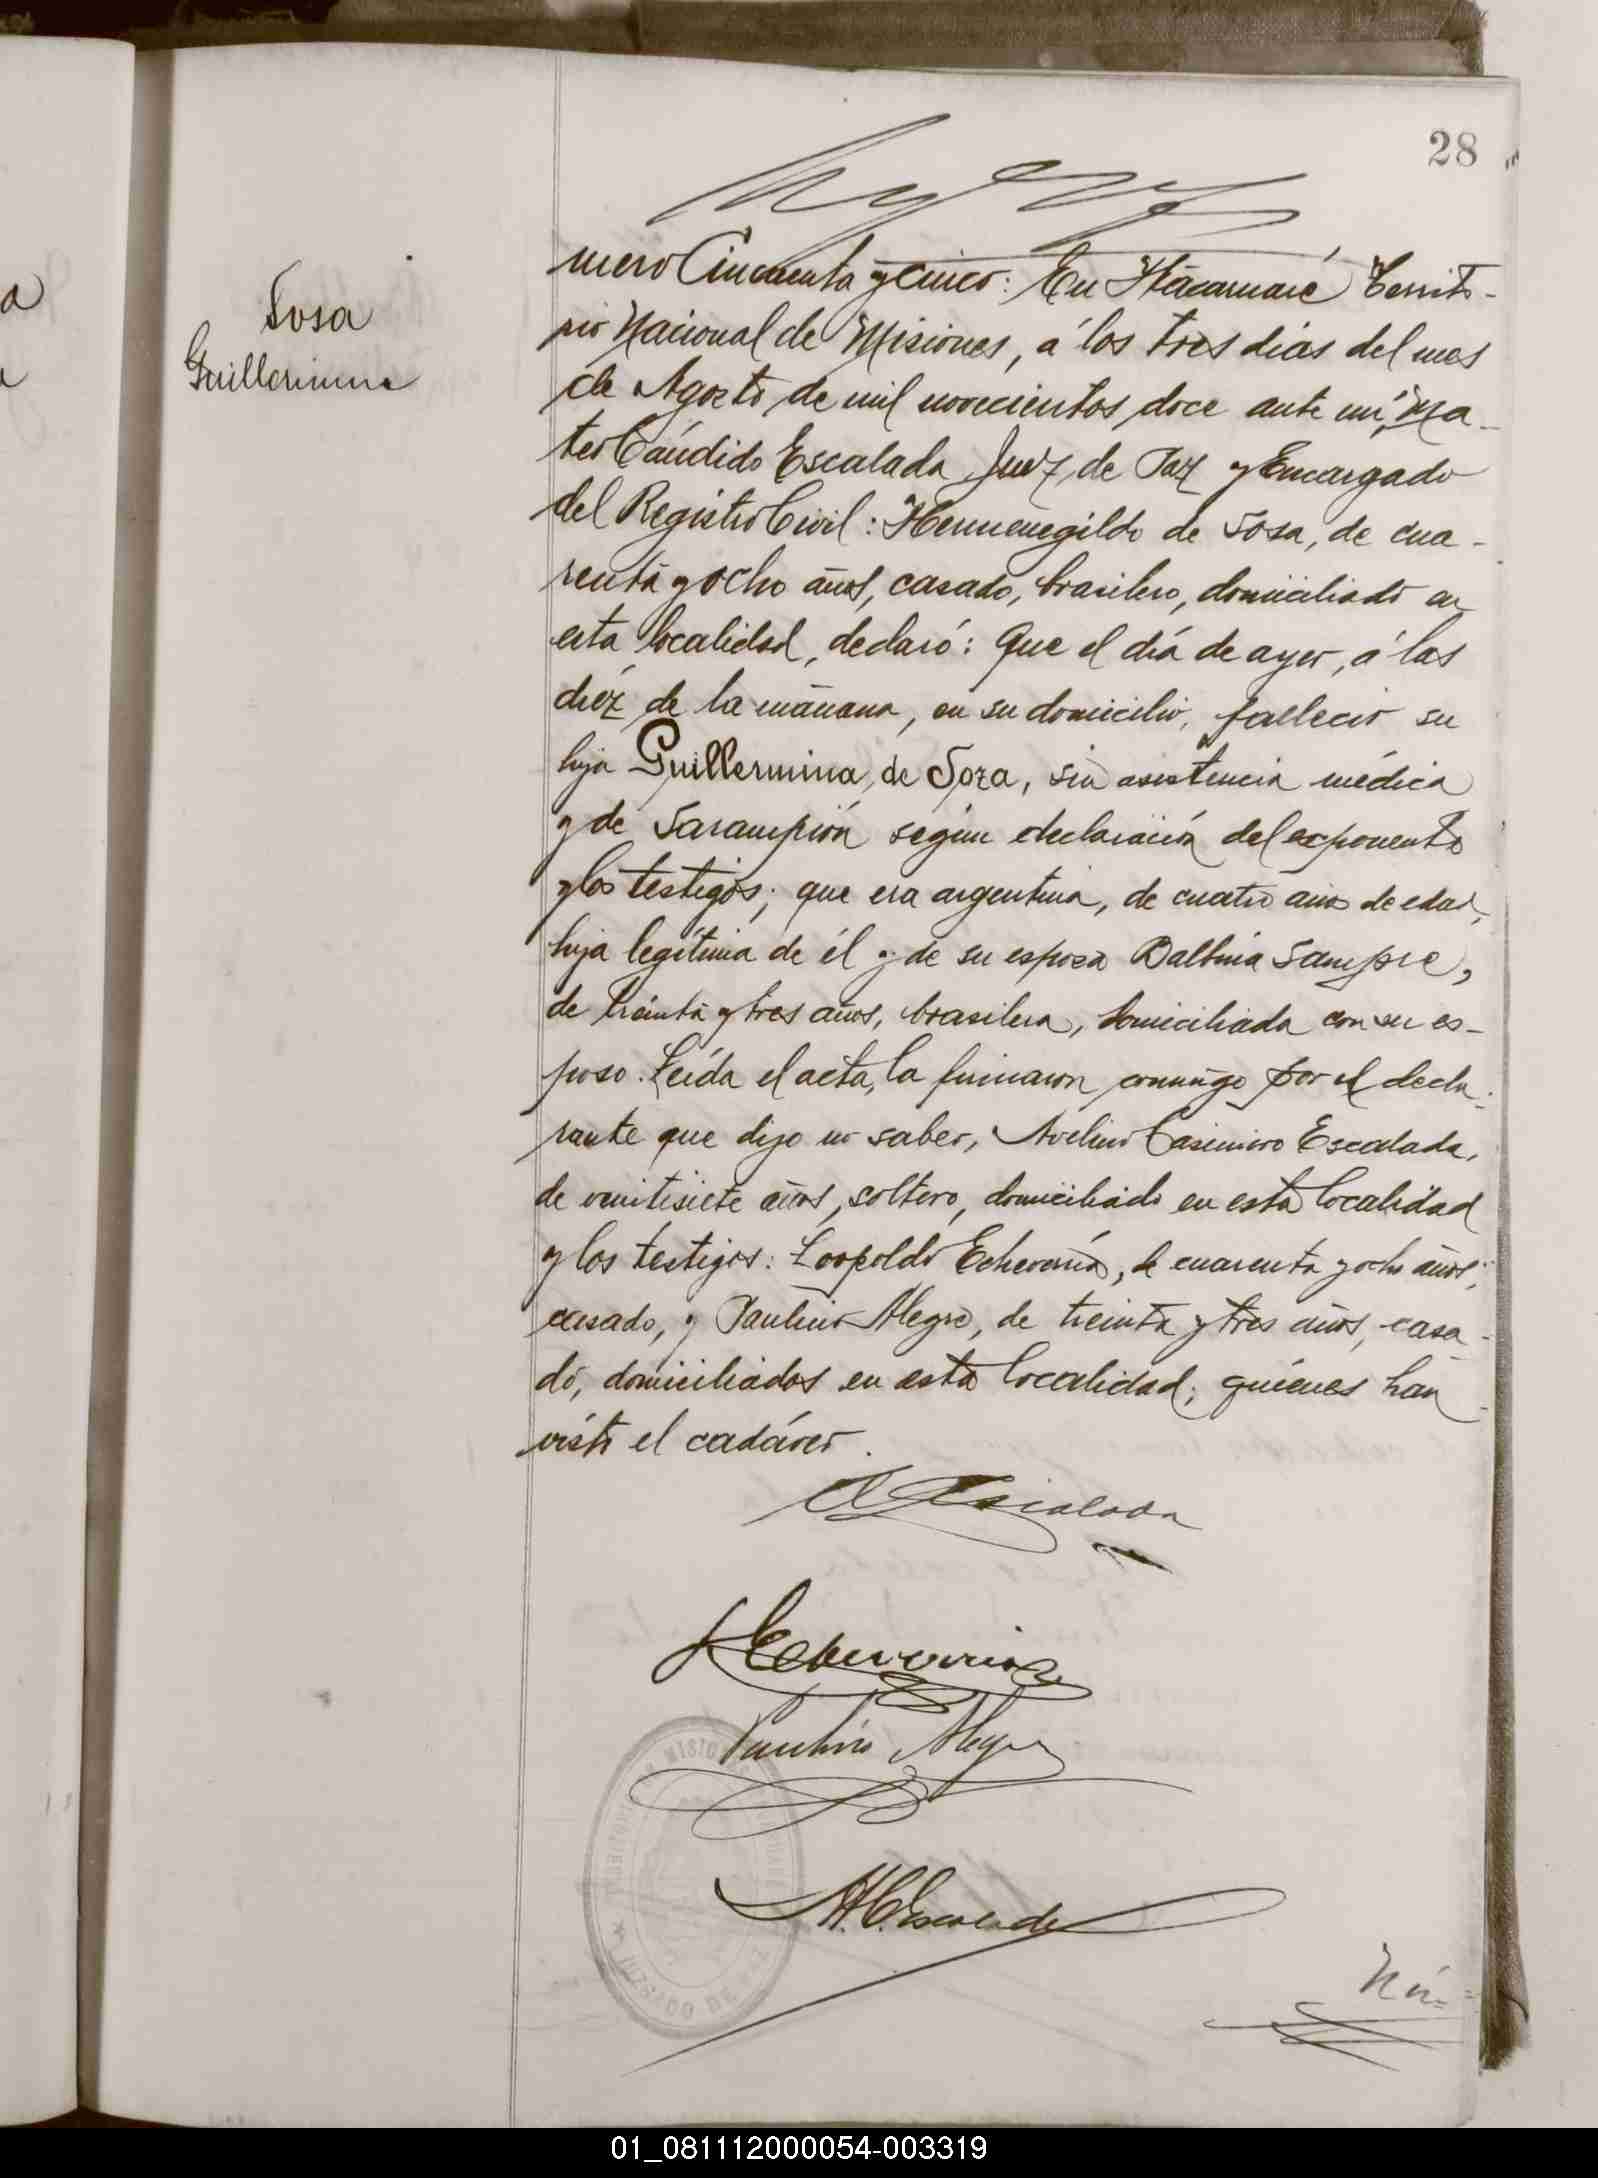 28
Sosa
Guillermina
mero Cincuenta y cinco: En Itacaruaré Territo-
rio Nacional de Misiones, á los tres dias del mes
de Agosto de mil novecientos doce ante mí, Ma-
teo Cándido Escalada Juez de Paz y Encargado
del Registro Civil: Hermenegildo de Sosa, de cua-
renta y ocho años, casado, brasilero, domiciliado en
esta localidad, declaró: Que el día de ayer, á las
diez de la mañana, en su domicilio, falleció su
hija Guillermina de Soza, sin asistencia médica
y de Sarampión según declaración del exponente
y los testigos; que era argentina, de cuatro años de edad,
hija legítima de él y de su esposa Balbina Sampre,
de treinta y tres años, brasilera, domiciliada con su es-
poso. Leída el acta, la firmaron conmigo por el decla-
rante que dijo no saber, Avelino Casimiro Escalada,
de veintisiete años, soltero, domiciliado en esta localidad
y los testigos: Leopoldo Echeverría, de cuarenta y ocho años,
casado, y Paulino Alegre, de treinta y tres años, casa-
do, domiciliados en esta localidad; quienes han
visto el cadáver.
A Escalada
L Echeverria
Paulino Alegre
M. C. Escalada
JUZGADO DE
MISIO
Nú=
01_081112000054-003319